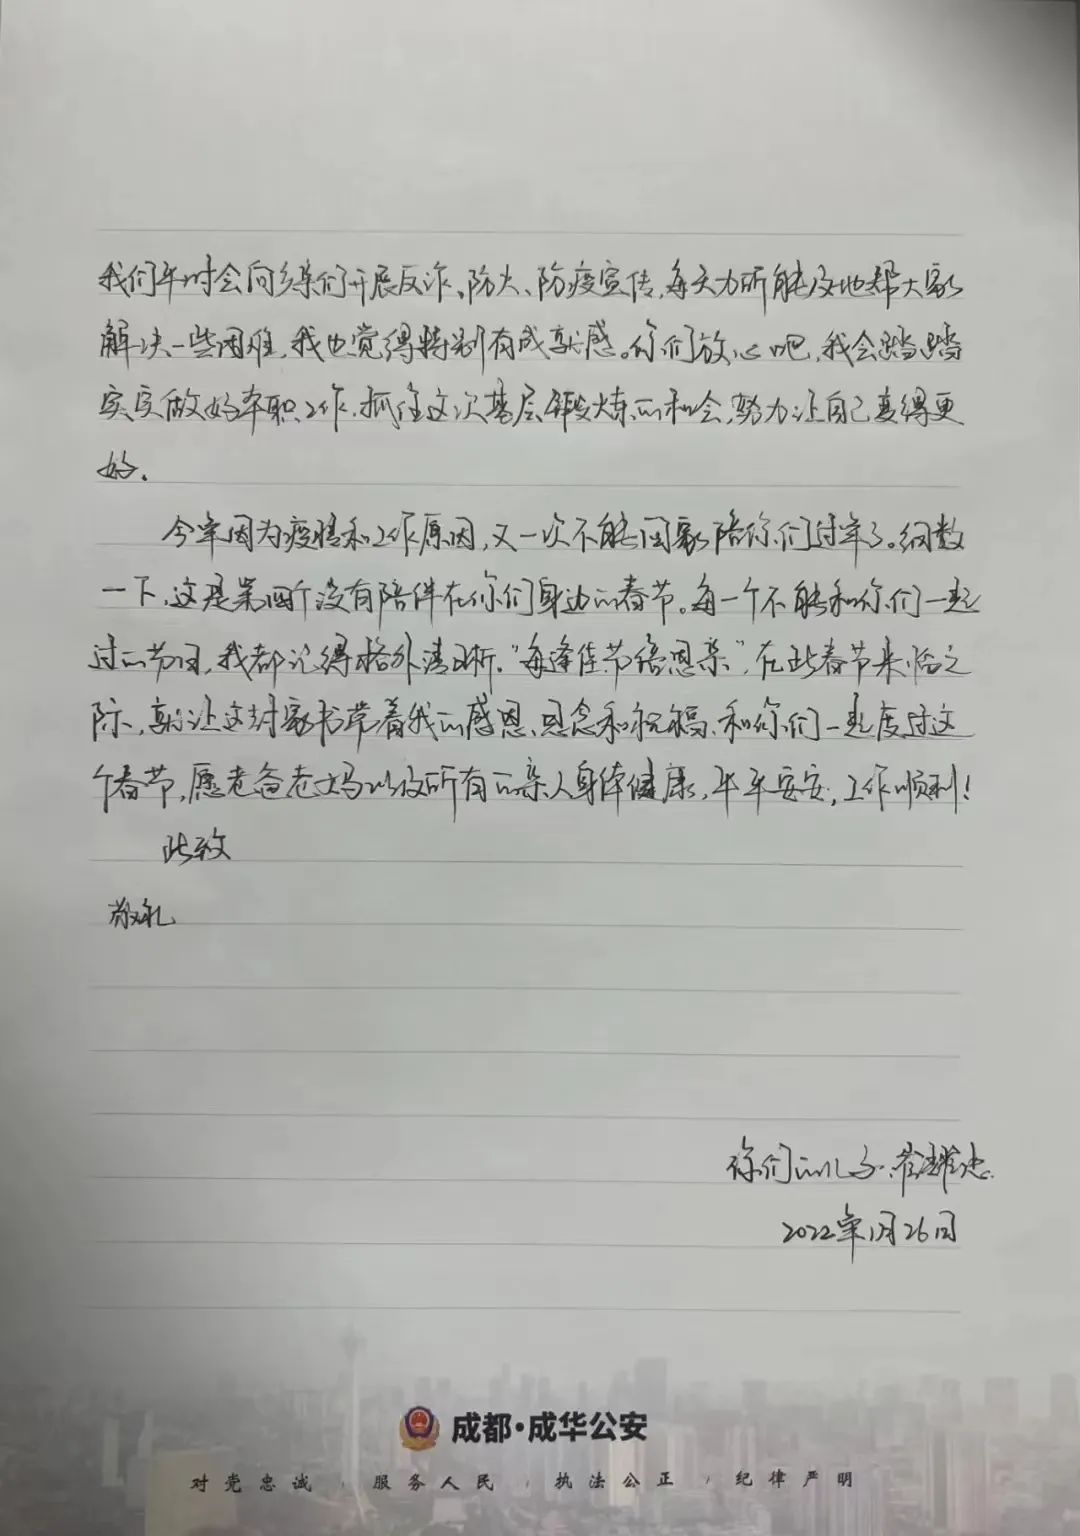 我们平时会向乡亲们开展反诈、防火、防疫宣传,每天力所能及地帮大家
解决一些困难,我也觉得特别有成就感。你们放心吧,我会踏踏
实实做好本职工作,抓住这次基层锻炼的机会,努力让自己变得更
好。
今年因为疫情和工作原因,又一次不能回家陪你们过年了。细数
一下,这是第四个没有陪伴在你们身边的春节。每一个不能和你们一起
过的节日,我都记得格外清晰。“每逢佳节倍思亲”,在此春节来临之
际,就让这封家书带着我的感恩、思念和祝福,和你们一起度过这
个春节,愿老爸老妈以及所有的亲人身体健康,平平安安,工作顺利!
此致
敬礼
你们的儿子:
2022年1月26日
成都·成华公安
对党忠诚 服务人民 执法公正 纪律严明